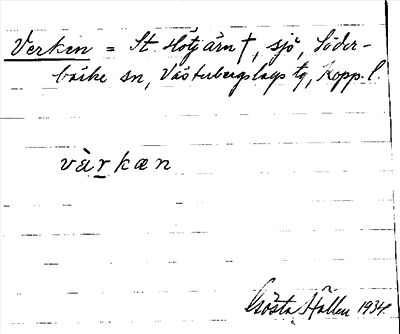 Verken = St. Hötjärn†, sjö, Söder-
bärke sn, Västerbergslags tg, Kopp. l.
vàrkæn
Gösta Hallen 1934.